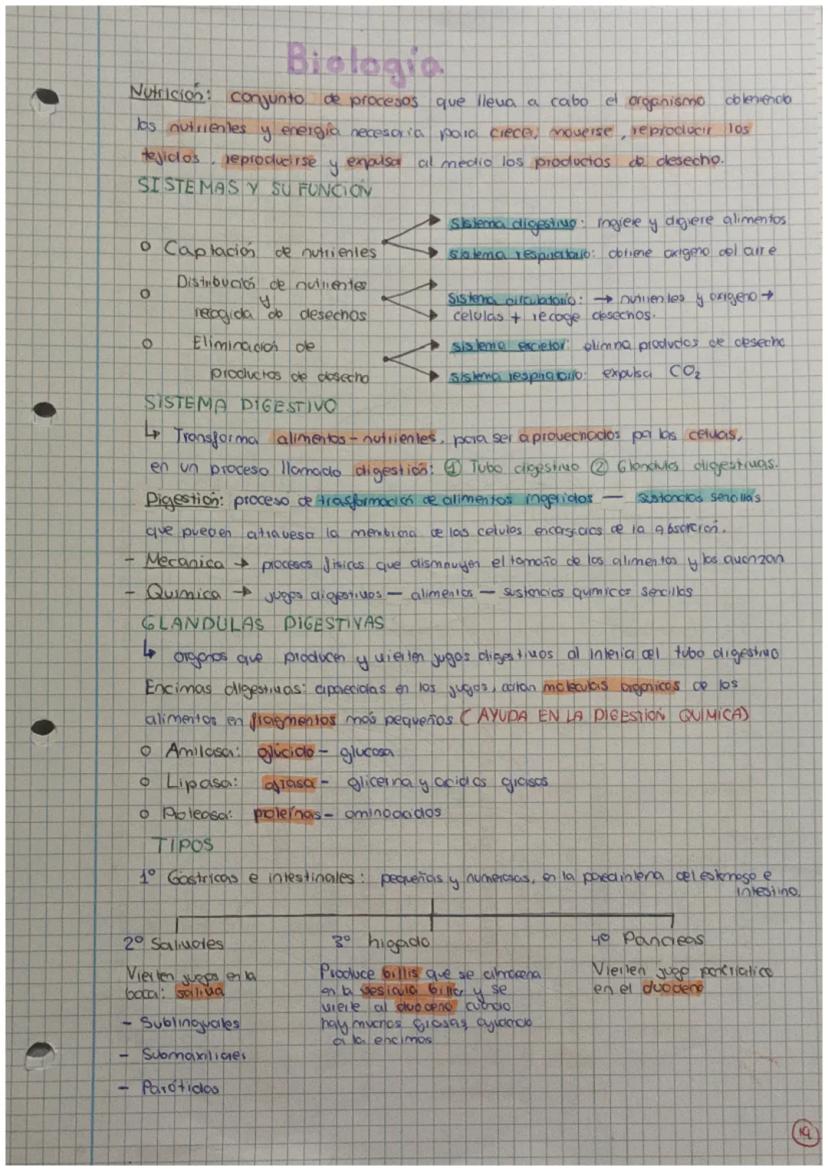 Biología
Nutrición: conjunto de procesos que lleva a cabo el organismo obteniendo
los nutrientes y energía necesaria para crecer, moverse, reproducir los
tejidos, reproducirse y expulsar al medio los productos de desecho.
SISTEMAS Y SU FUNCIÓN
o Captación de nutrientes
Sistema digestivo: ingiere y digiere alimentos
sistema respiratorio: obtiene oxigeno del aire
o Distribución de nutrientes
y
recogida de desechos
Sistema circulatorio: → nutrientes y oxigeno →
celulas + recoge desechos.
o Eliminación de
productos de desecho
sistema excretor: elimina productos de desecho
sistema respiratorio: expulsa CO2
SISTEMA DIGESTIVO
↳ Transforma alimentos - nutrientes, para ser aprovechados por las celulas,
en un proceso llamado digestión: ① Tubo digestivo ② Glandulas digestivas.
Digestión: proceso de trasformación de alimentos ingeridos — sustancias sencillas
que pueden atravesar la membrana de las celulas encargadas de la absorción.
- Mecanica → procesos fisicos que disminuyen el tamaño de los alimentos y los avanzan
- Quimica → jugos digestivos — alimentos — sustancias quimicas sencillas
GLANDULAS DIGESTIVAS
↳ organos que producen y vierten jugos digestivos al interior del tubo digestivo
Encimas digestivas: aparecidas en los jugos, actan moleculas organicas de los
alimentos en fragmentos más pequeños (AYUDA EN LA DIGESTIÓN QUIMICA)
o Amilasa: glúcido - glucosa
o Lipasa: grasa - glicerina y acidos grasos
o Proteasa: proteínas - aminoacidos
TIPOS
1º Gástricas e intestinales: pequeñas y numerosas, en la pared interna del estomago e
intestino.
2º Salivales
Vierten jugos en la
boca: saliva
- Sublinguales
- Submaxilares
- Parótidas
3º hígado
Produce billis que se almacena
en la vesicula biliar y se
vierte al duodeno cuando
hay muchas grasas, ayudando
a la encimas
4º Pancreas
Vierten jugo pancriatico
en el duodeno